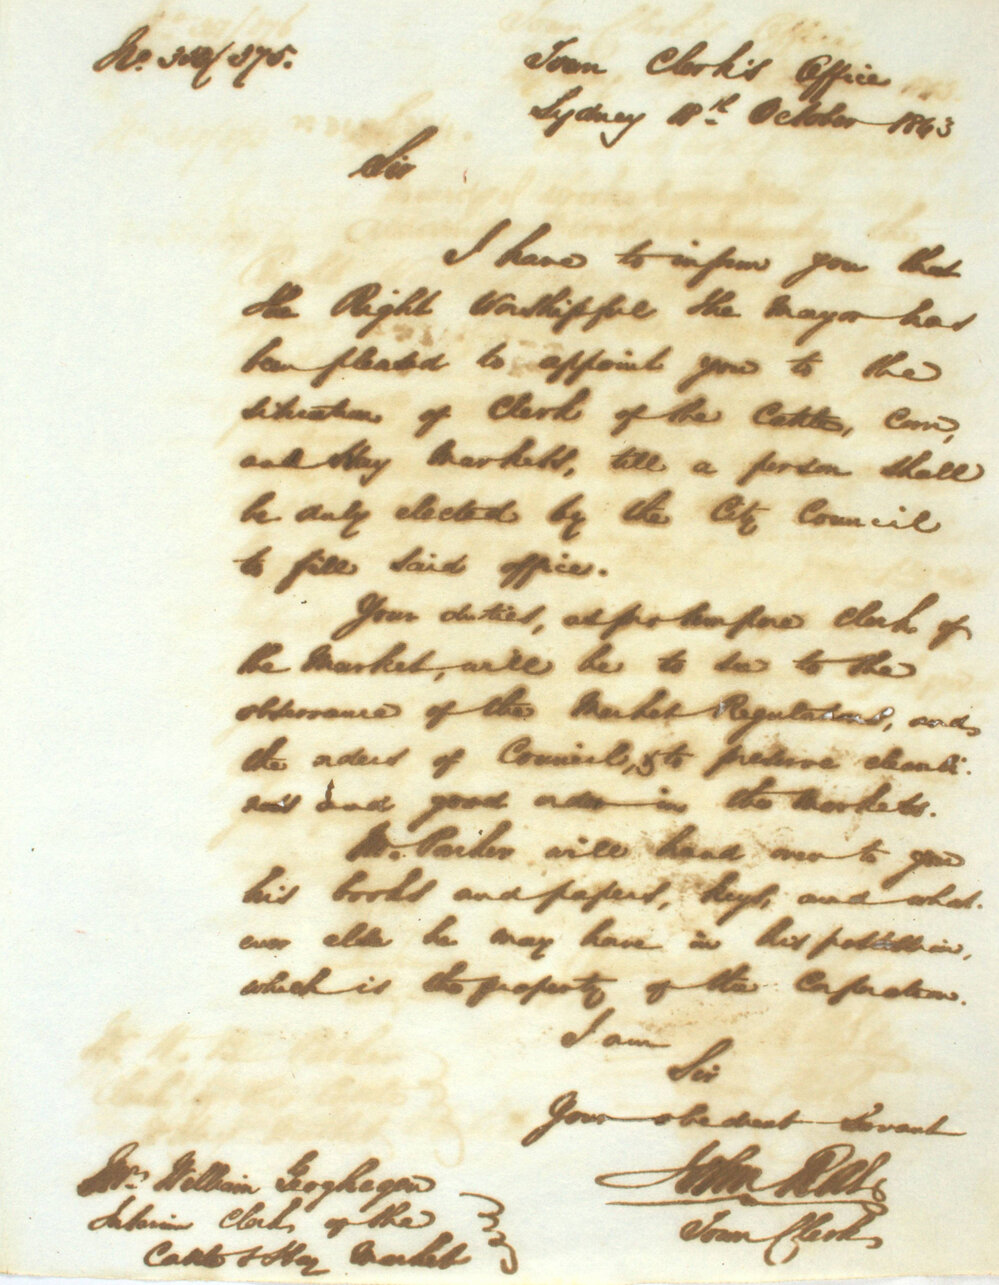 Town Clerk's Office
Sydney 18th October 1843
Sir
I have to inform you that
the Right Worshipful the Mayor has
been pleased to appoint you to the
situation of Clerk of the Cattle, Corn,
and Hay Markets, till a person shall
be duly elected by the City Council
to fill said office.
Your duties, as pro tempore Clerk of
the Market, will be to see to the
observance of the Market Regulations, and
the orders of Council, & to preserve cleanli-
ness and good order in the Markets.
Mr. Parker will hand over to you
his books and papers, keys, and what-
ever else he may have in his possession,
which is the property of the Corporation.
I am
Sir
Your obedient Servant
John Rae
Town Clerk
Mr. William Geoghegan
Interim Clerk of the
Cattle & Hay Market